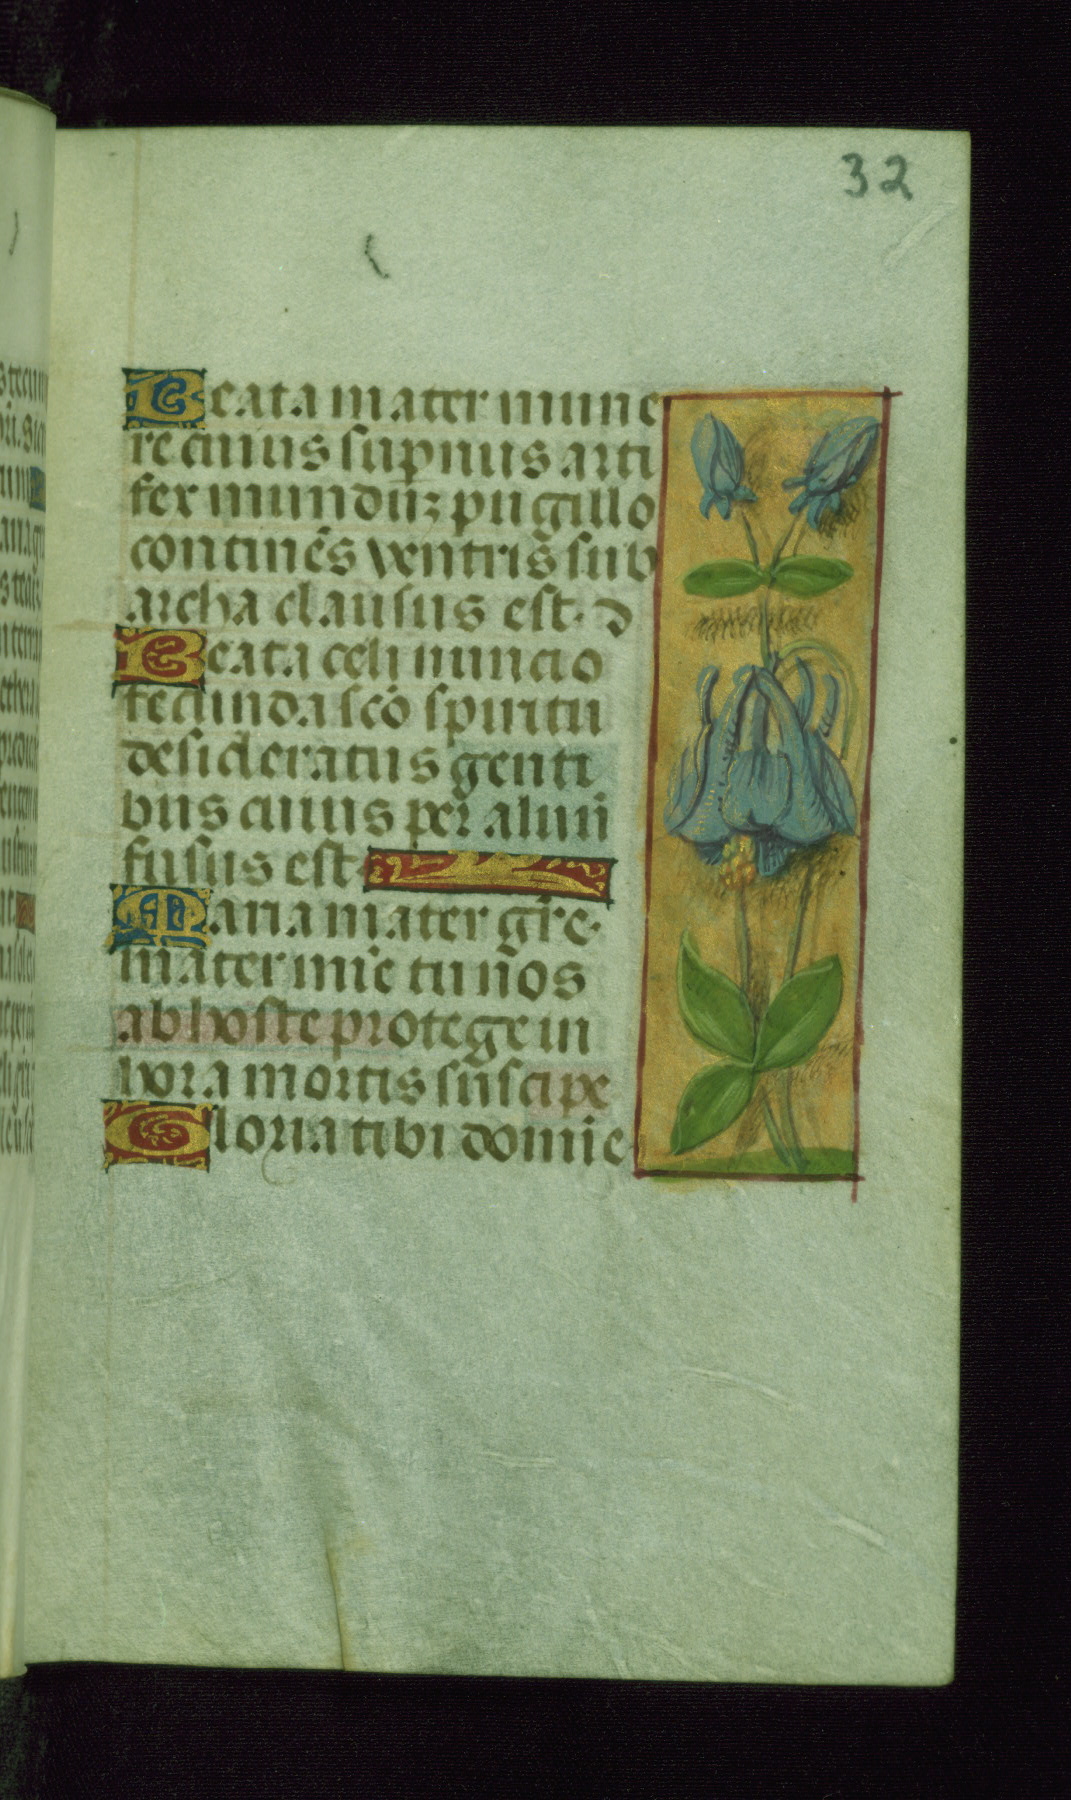 32
Beata mater mune
re cuius supnus arti
fex mundūꝫ pugillo
continēs ventris sub
archa clausus est. D
Beata celi nuncio
fecunda scō spiritu
desideratus genti
bus cuius per aluū
fusus est
Maria mater gr̄e.
mater mīe tu nos
ab hoste protege in
hora mortis suscipe
Gloria tibi domīe